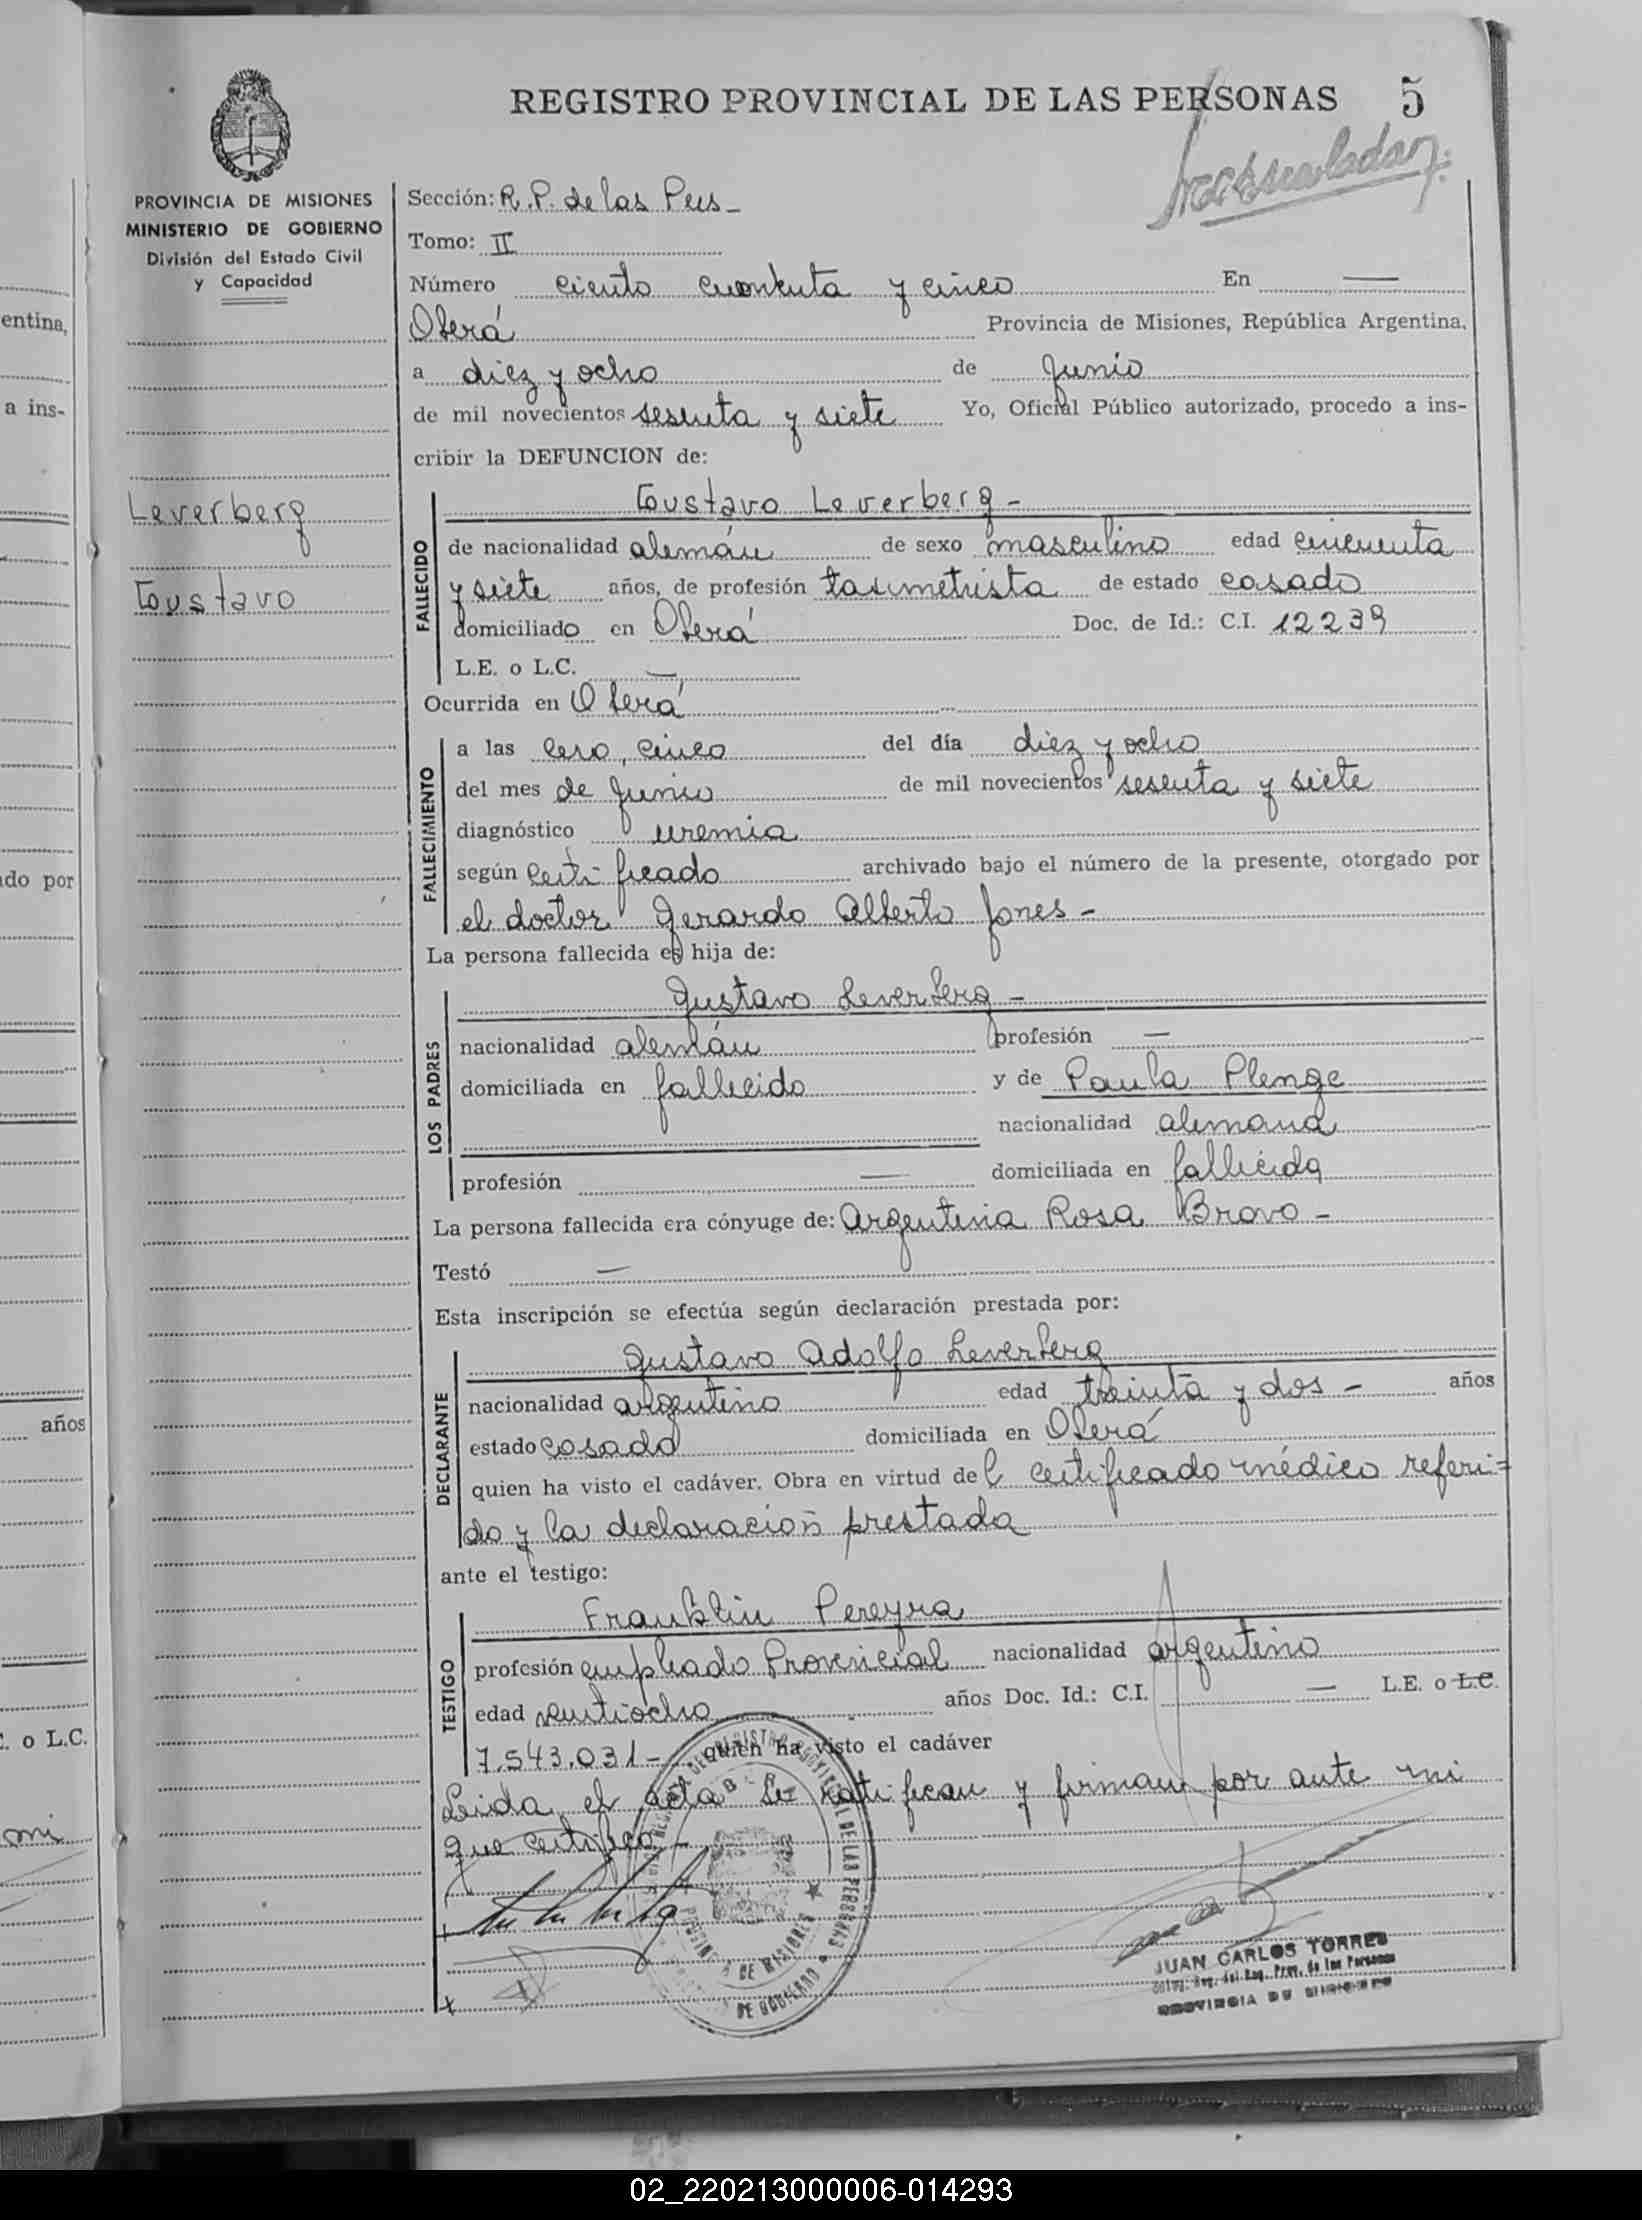 REGISTRO PROVINCIAL DE LAS PERSONAS 5
PROVINCIA DE MISIONES
MINISTERIO DE GOBIERNO
División del Estado Civil
y Capacidad
Leverberg
Gustavo
Sección: R.P. de las Pers -
Tomo: II
Número ciento cuarenta y cinco En —
Oberá Provincia de Misiones, República Argentina,
a diez y ocho de Junio
de mil novecientos sesenta y siete Yo, Oficial Público autorizado, procedo a ins-
cribir la DEFUNCION de:
Gustavo Leverberg -
FALLECIDO
de nacionalidad alemán de sexo masculino edad cincuenta
y siete años, de profesión taximetrista de estado casado
domiciliado en Oberá Doc. de Id.: C.I. 12239
L.E. o L.C. —
Ocurrida en Oberá
FALLECIMIENTO
a las cero, cinco del día diez y ocho
del mes de Junio de mil novecientos sesenta y siete
diagnóstico uremia
según certificado archivado bajo el número de la presente, otorgado por
el doctor Gerardo Alberto Jones -
La persona fallecida es hija de:
LOS PADRES
Gustavo Leverberg -
nacionalidad alemán profesión —
domiciliada en fallecido y de Paula Plenge
nacionalidad alemana
profesión — domiciliada en fallecida
La persona fallecida era cónyuge de: Argentina Rosa Bravo -
Testó —
Esta inscripción se efectúa según declaración prestada por:
DECLARANTE
Gustavo Adolfo Leverberg
nacionalidad argentino edad treinta y dos - años
estado casado domiciliada en Oberá
quien ha visto el cadáver. Obra en virtud del certificado médico referi-
do y la declaración prestada
ante el testigo:
TESTIGO
Franklin Pereyra
profesión empleado Provincial nacionalidad argentino
edad veintiocho años Doc. Id.: C.I. — L.E. o L.C.
7.543.031 - quien ha visto el cadáver
Leida el acta la ratifican y firman por ante mi
que certifico -
JUAN CARLOS TORRES
PROVINCIA DE MISIONES
entina,
a ins-
do por
años
o L.C.
02_220213000006-014293